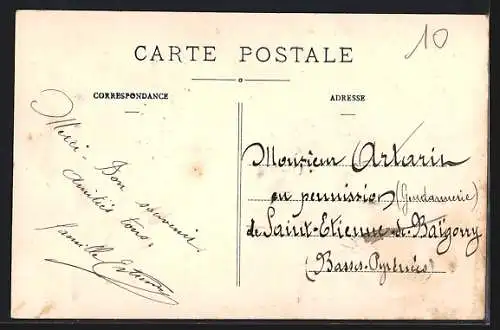 10
CARTE POSTALE
CORRESPONDANCE
Merci - Bon souvenir
amitiés
famille
ADRESSE
Monsieur Artarit
en permission (Gendarmerie)
de Saint-Etienne-de-Baïgorry
(Basses-Pyrénées)